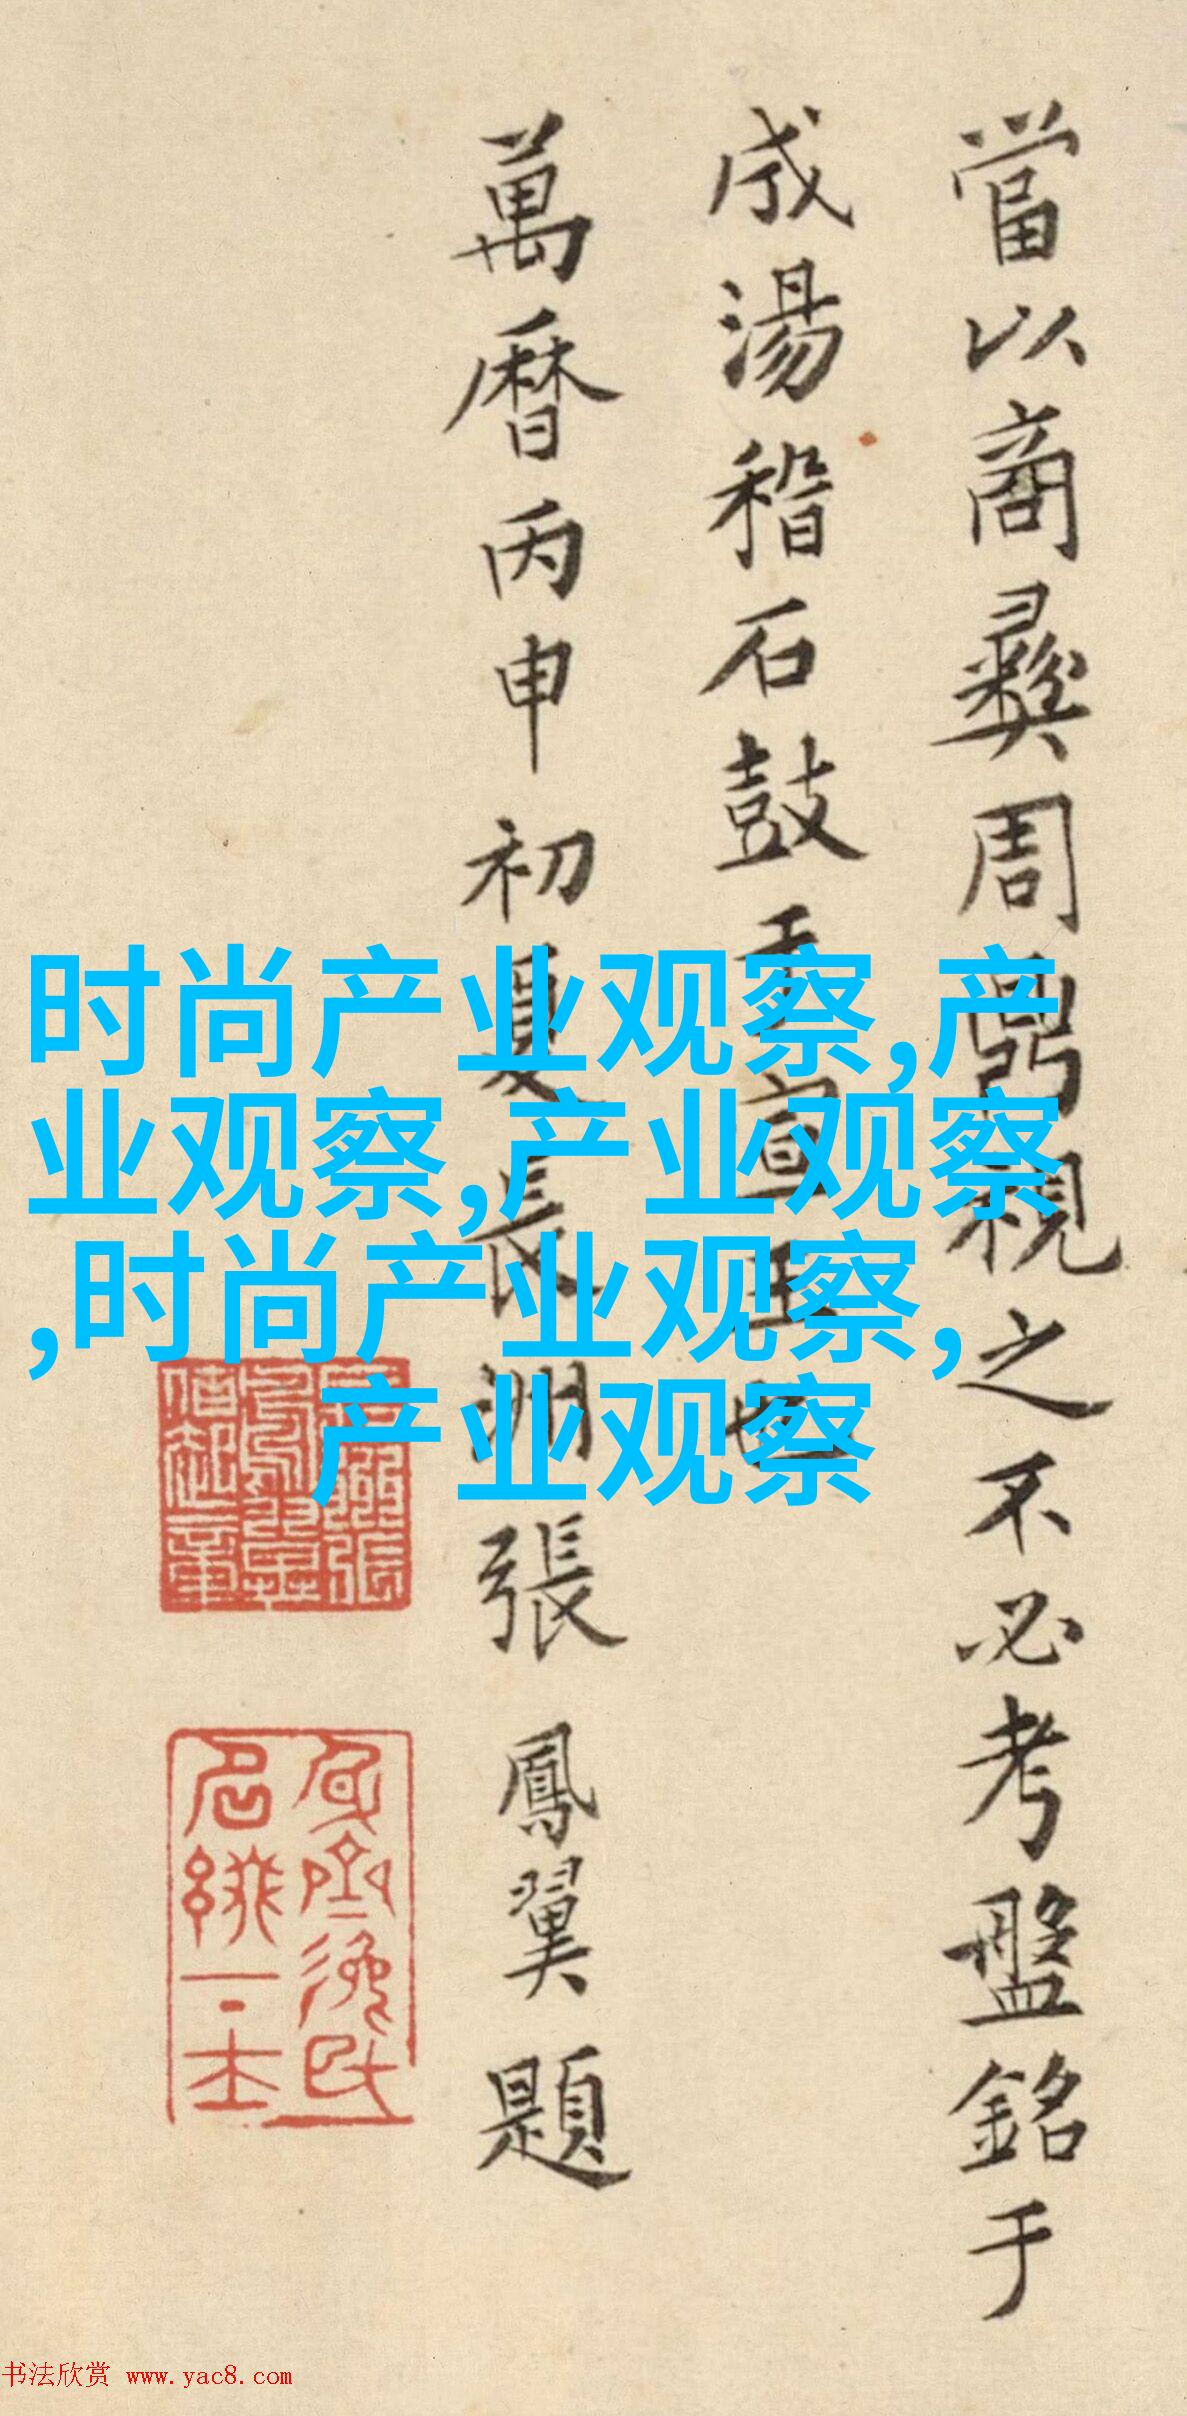 當以商彝周鼎視之不必考盤銘于
成湯稽石鼓于宣王也
萬曆丙申初夏長洲張鳳翼題
时尚产业观察,产
业观察,产业观察
,时尚产业观察,
产业观察
书法欣赏 www.yac8.com